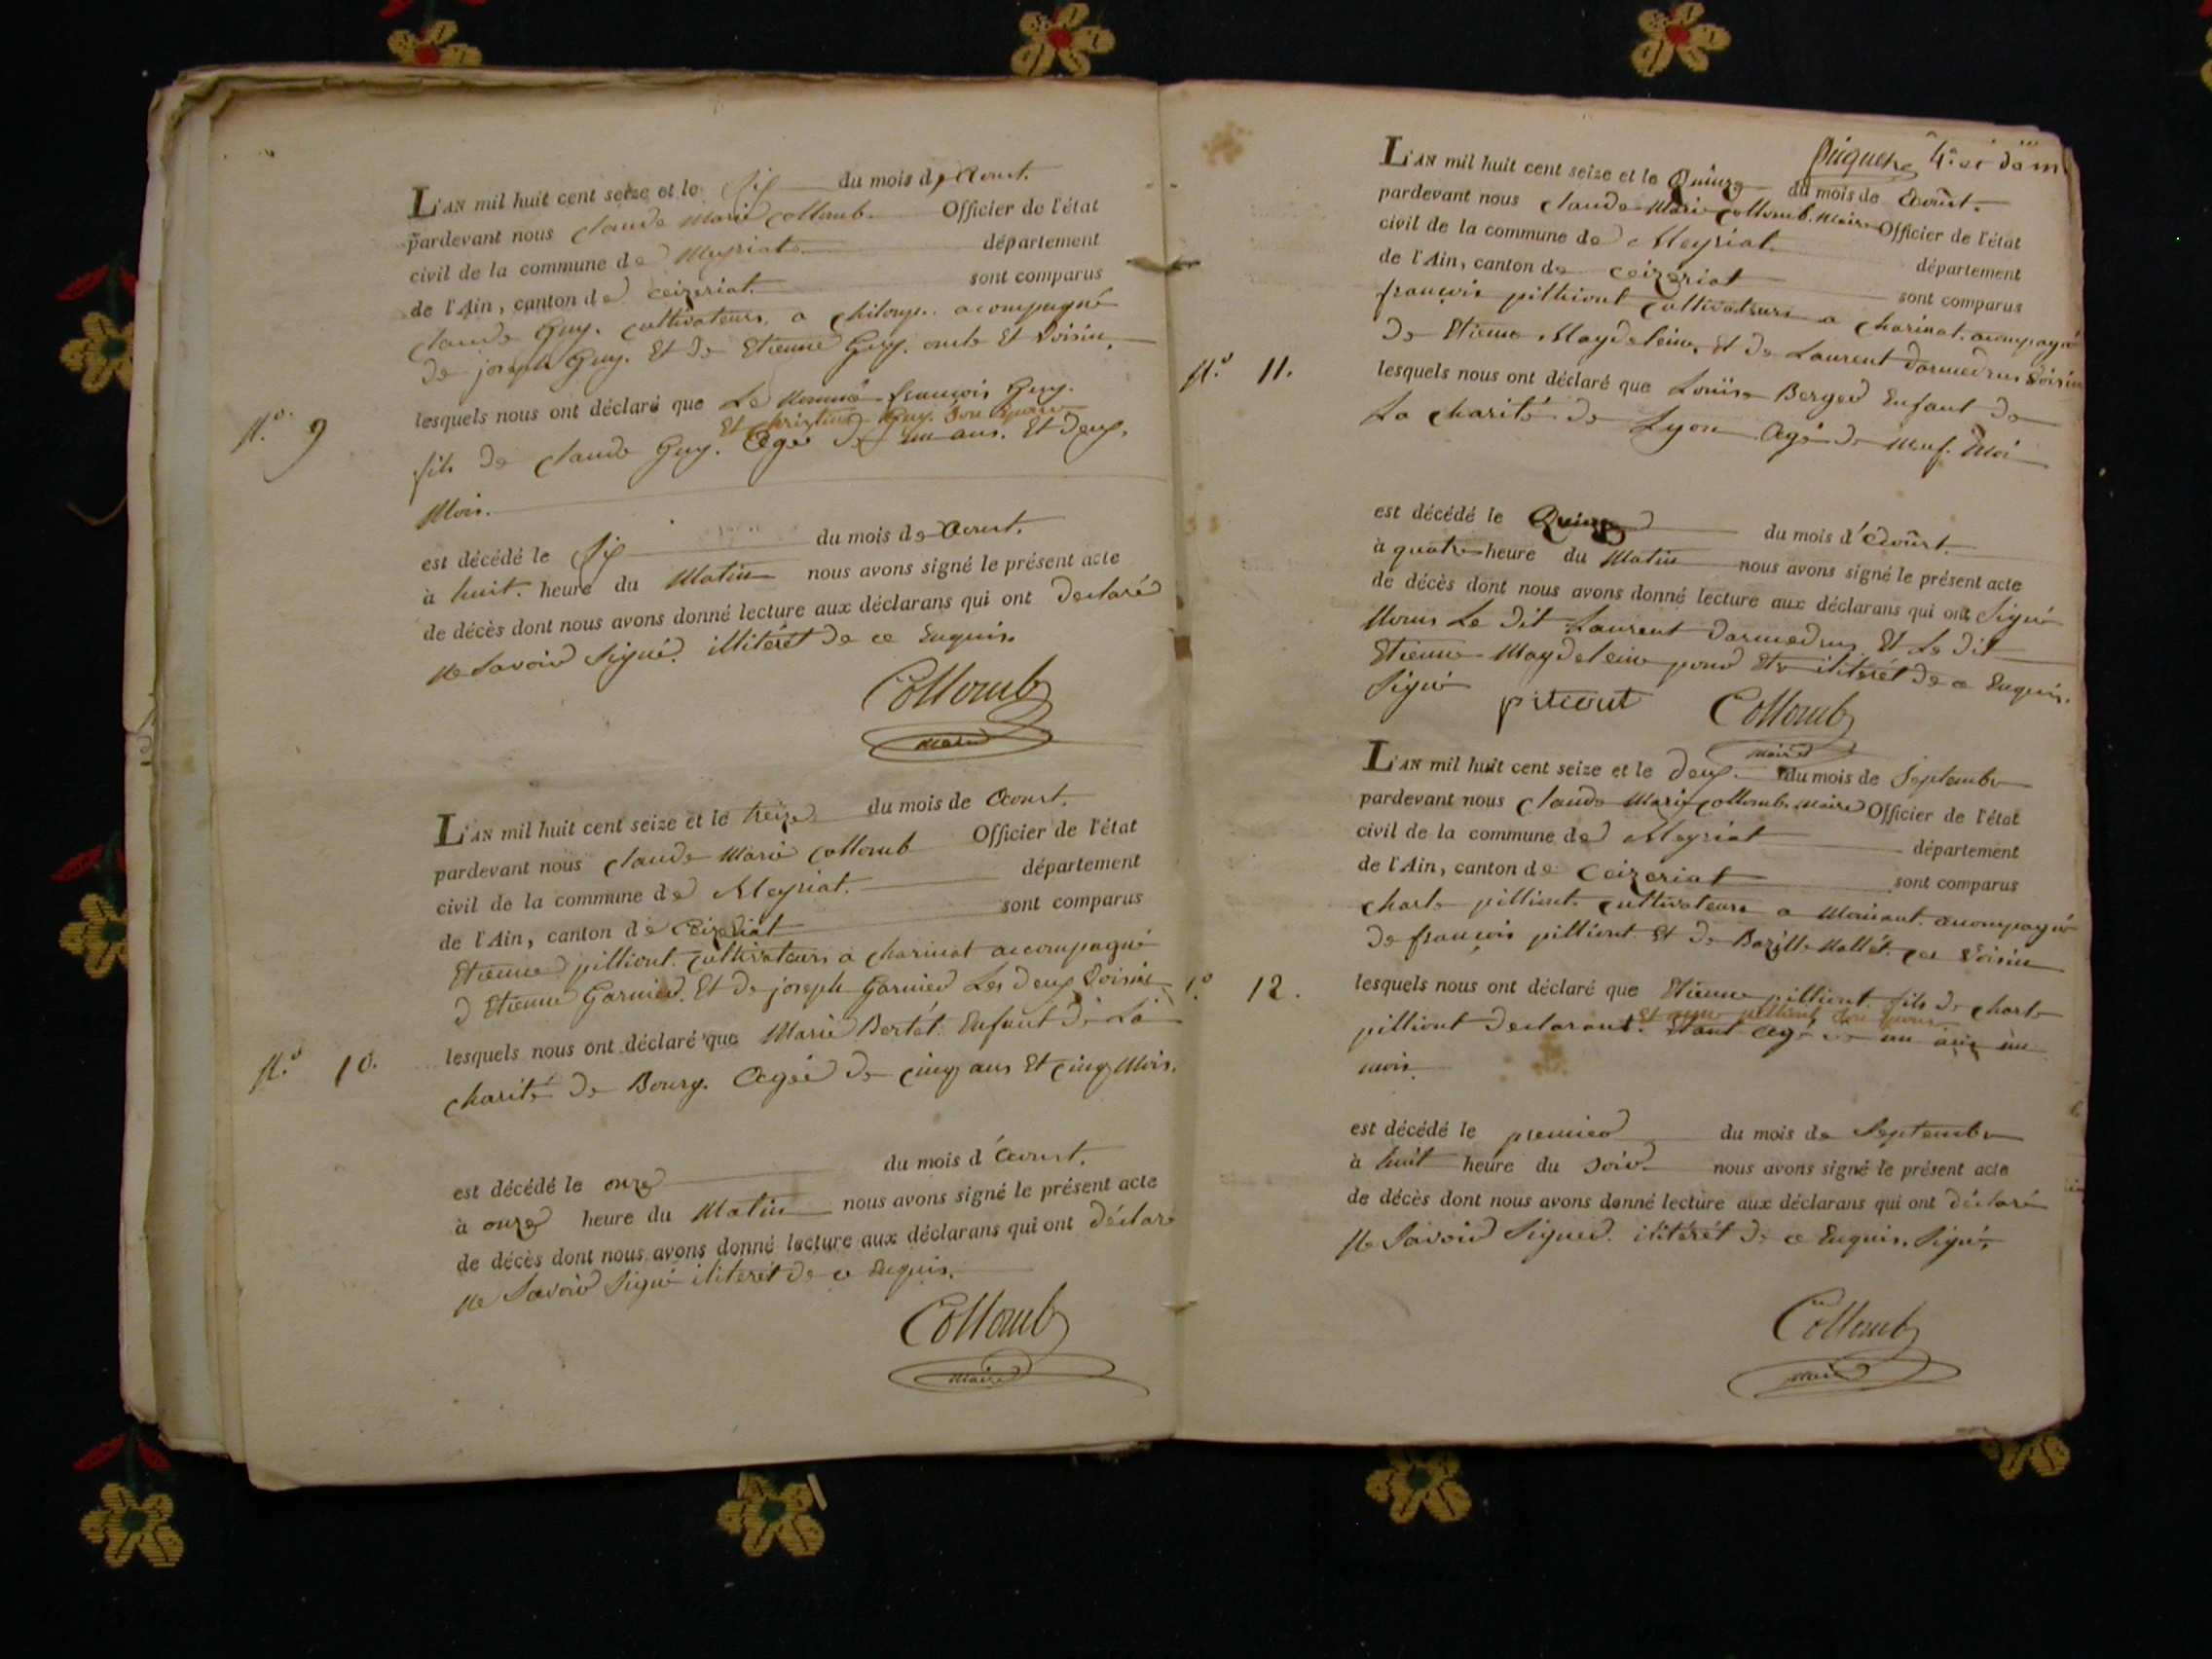 L'AN mil huit cent seize et le six du mois d, Aoust.
pardevant nous Claude Marie Collomb. Officier de l'état
civil de la commune de Meyriat département
de l'Ain, canton de Ceizeriat. sont comparus
Claude Guy. Cultivateurs. a Chiloup. acompagné
de joseph Guy. Et de Etienne Guy. oncle Et Voisin.
N.º 9
lesquels nous ont déclaré que Le Nommé françois Guy.
Et Christine Guy. Son Epouse
fils de Claude Guy. Agé de un ans. Et deux.
Mois.
est décédé le six du mois de Aoust.
à huit. heure du Matin nous avons signé le présent acte
de décès dont nous avons donné lecture aux déclarans qui ont declaré
Ne Savoir Signé. illitéret de ce Enquis.
Collomb
Maire
L'AN mil huit cent seize et le treize du mois de Aoust.
pardevant nous Claude Marie Collomb Officier de l'état
civil de la commune de Meyriat. département
de l'Ain, canton de Ceizeriat sont comparus
Etienne pilliont. Cultivateurs a Charinat accompagné
d Etienne Garnier. Et de joseph Garnier Les deux Voisins
N.º 10.
lesquels nous ont déclaré que Marie Bertét. Enfant de La
Charité de Bourg. Agée de Cinq ans Et Cinq Mois.
est décédé le onze du mois d'Aoust.
à onze heure du Matin nous avons signé le présent acte
de décès dont nous avons donné lecture aux déclarans qui ont déclaré
Ne Savoir Signé iliteret de ce Enquis.
Collomb
Maire
L'AN mil huit cent seize et le Quinze du mois de Aoûst.
pardevant nous Claude Marie Collomb. Maire Officier de l'état
civil de la commune de Meyriat. département
de l'Ain, canton de Ceizériat sont comparus
françois pilliont Cultivateurs a Charinat. acompagné
de Etienne Magdeleine, Et de Laurent Darmedrus Voisin
N.º 11.
lesquels nous ont déclaré que Louise Berger Enfant de
La Charité de Lyon Agé de Neuf. Moi
est décédé le Quinze du mois d'Aoûst.
à quatre heure du Matin nous avons signé le présent acte
de décès dont nous avons donné lecture aux déclarans qui ont Signé
Nous Le dit Laurent Darmedrus Et Le dit
Etienne Magdeleine pour Etre ilitérét de ce Enquis.
Signé Collomb
Maire
L'AN mil huit cent seize et le deux. du mois de Septembre
pardevant nous Claude Marie Collomb. Maire Officier de l'état
civil de la commune de Meyriat département
de l'Ain, canton de Ceizeriat sont comparus
Charle pilliont. Cultivateurs a acompagné
de françois pilliont. Et de Bazille Mallét. Voisin
N.º 12.
lesquels nous ont déclaré que Etienne pilliont. fils de Charle
pilliont declarant. Etant agé de un ans un
mois.
est décédé le premier du mois de Septembre
à huit heure du soir. nous avons signé le présent acte
de décès dont nous avons donné lecture aux déclarans qui ont déclaré
Ne Savoir Signer. ilitérét de ce Enquis. Signé,
Collomb
Maire